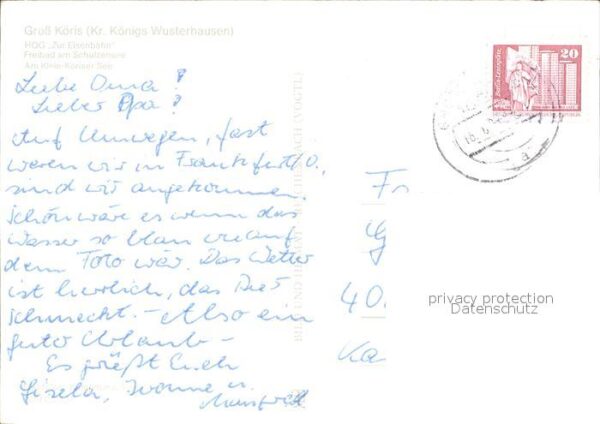 Groß Köris (Kr. Königs Wusterhausen)
HOG „Zur Eisenbahn“
Freibad am Schulzensee
Am Klein Köriser See
Liebe Oma!
Lieber Opa!
Auf Umwegen, fast
waren wir in Frankfurt/O.,
sind wir angekommen.
Schön wäre es wenn das
Wasser so blau wie auf
dem Foto wär. Das Wetter
ist herrlich, das Bier
schmeckt. - Also ein
guter Urlaub -
Es grüßt Euch
Gisela, Ivonne u.
Manfred
BILD UND HEIMAT REICHENBACH (VOGTL)
20
Berlin-Leninplatz
DDR
Fr
40
Ka
privacy protection
Datenschutz